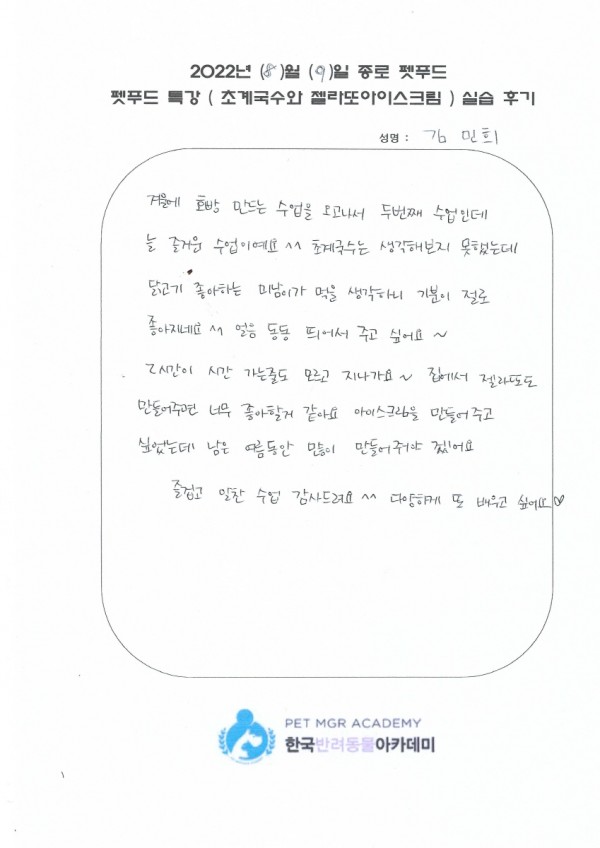 2022년 (8)월 (9)일 종로 펫푸드
펫푸드 특강 ( 초계국수와 젤라또아이스크림 ) 실습 후기
성명 : 김 민희
겨울에 호빵 만드는 수업을 오고나서 두번째 수업인데
늘 즐거운 수업이예요 ^^ 초계국수는 생각해보지 못했는데
닭고기 좋아하는 미남이가 먹을 생각하니 기분이 절로
좋아지네요 ^^ 얼음 동동 띄어서 주고 싶어요 ~
2시간이 시간 가는줄도 모르고 지나가요 ~ 집에서 젤라또도
만들어주면 너무 좋아할거 같아요 아이스크림을 만들어 주고
싶었는데 남은 여름동안 많이 만들어줘야 겠어요
즐겁고 알찬 수업 감사드려요 ^^ 다양하게 또 배우고 싶어요♡
PET MGR ACADEMY
한국반려동물아카데미